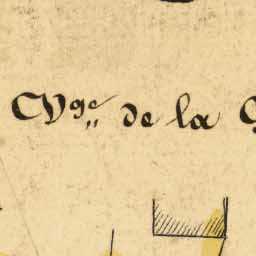 CVge de la